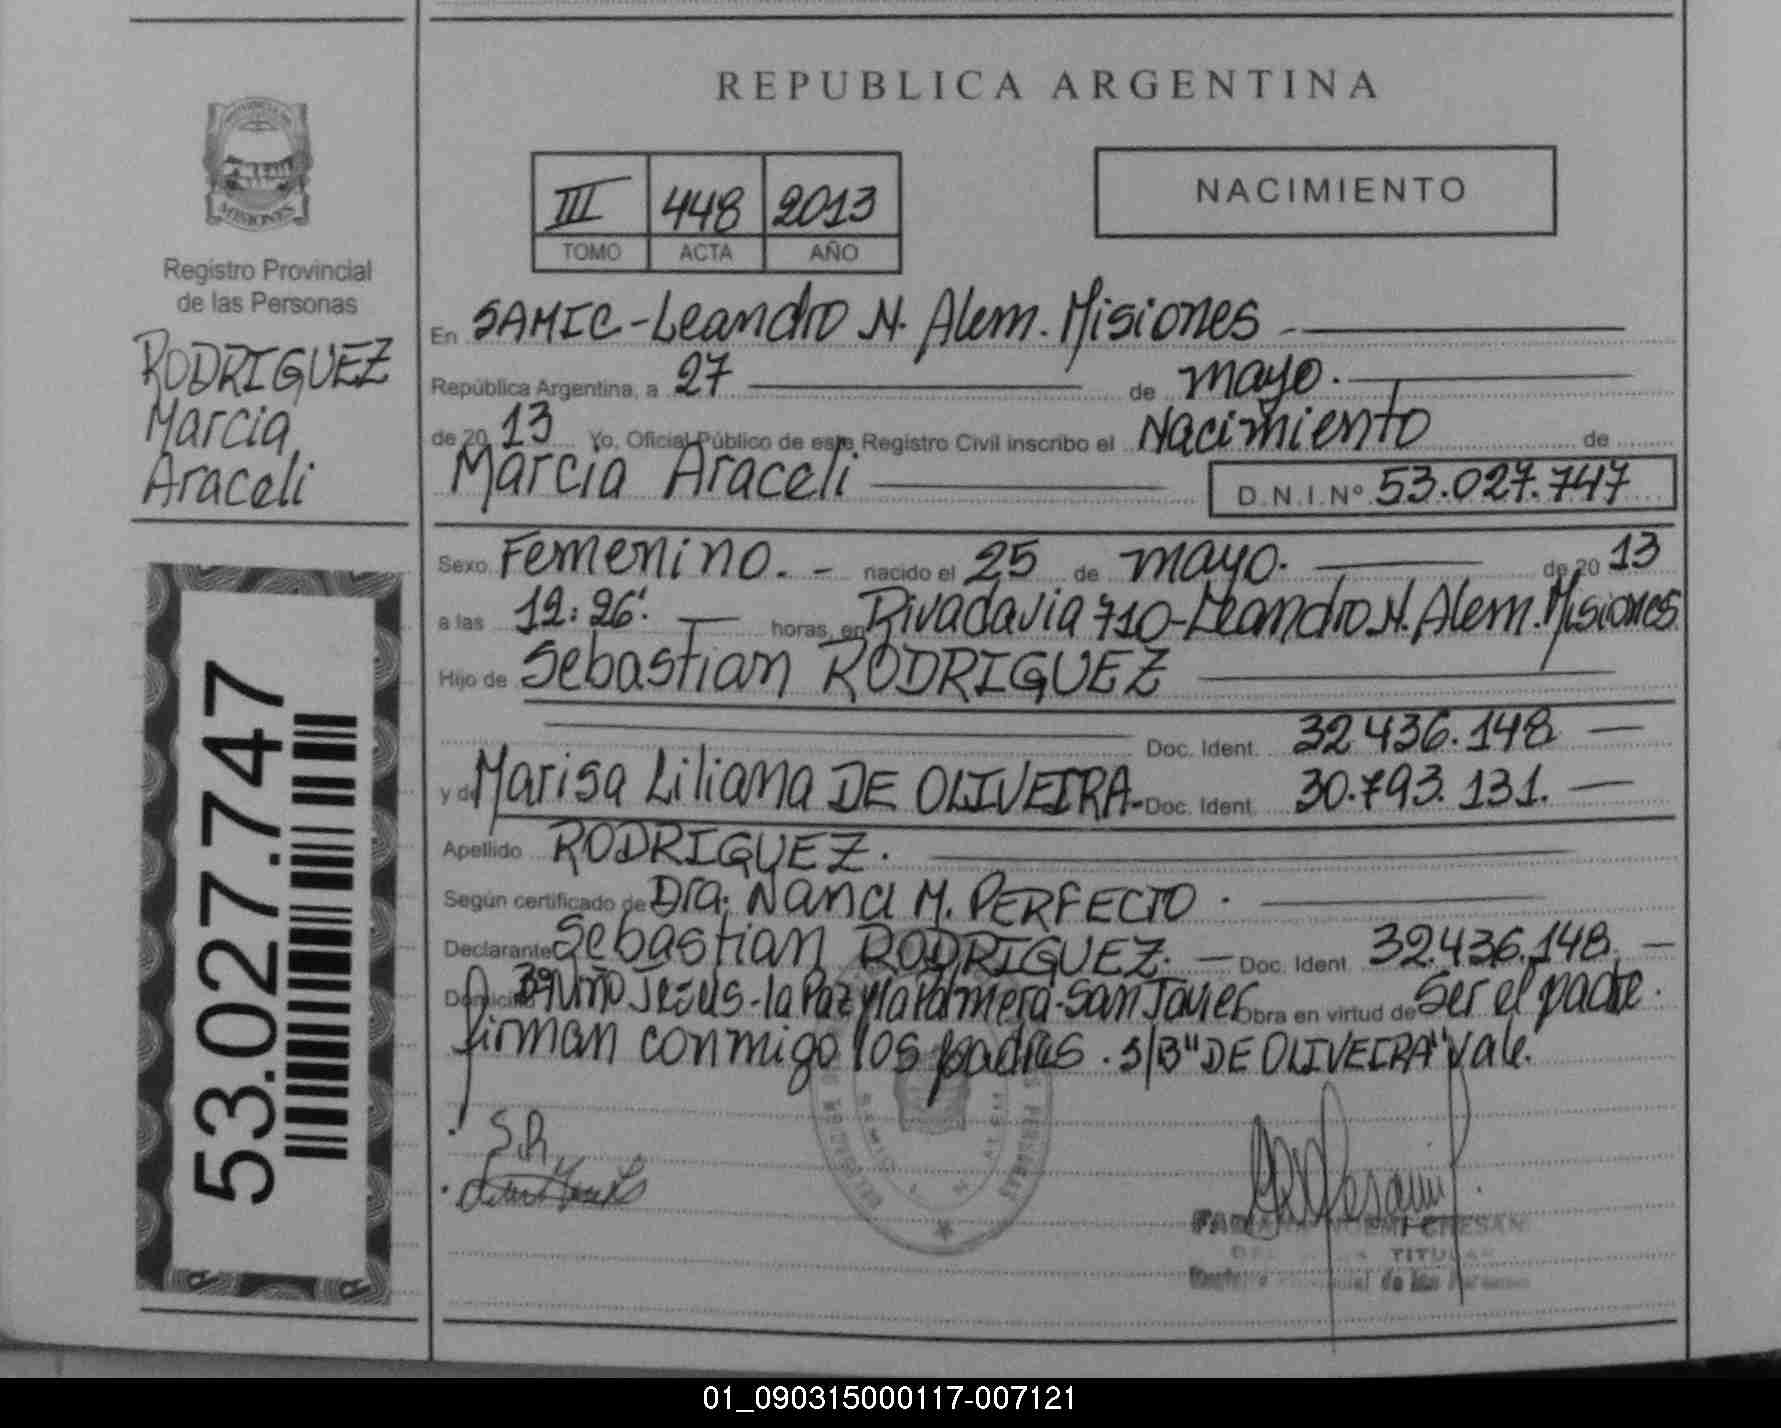 REPUBLICA ARGENTINA
PROVINCIA DE
MISIONES
Registro Provincial
de las Personas
RODRIGUEZ
Marcia
Araceli
53.027.747
III 448 2013
TOMO ACTA AÑO
NACIMIENTO
En SAMIC-Leandro N. Alem. Misiones
República Argentina, a 27 de mayo.
de 20 13 Yo, Oficial Público de este Registro Civil inscribo el Nacimiento de
Marcia Araceli D.N.I.Nº 53.027.747
Sexo Femenino.- nacido el 25 de mayo. de 20 13
a las 12:26'. horas, en Rivadavia 710-Leandro N. Alem. Misiones
Hijo de Sebastian RODRIGUEZ
Doc. Ident. 32.436.148
y de Marisa Liliana DE OLIVEIRA.- Doc. Ident. 30.793.131.
Apellido RODRIGUEZ.
Según certificado de Dra. Nanci M. PERFECTO.
Declarante Sebastian RODRIGUEZ. Doc. Ident. 32.436.148.
Domicilio Bº Niño Jesus-la Paz y la Palmera-San Javier Obra en virtud de Ser el padre.
firman conmigo los padres. S/B "DE OLIVEIRA" Vale.
S.R
PERSONAS
TITULAR
de las Personas
01_090315000117-007121